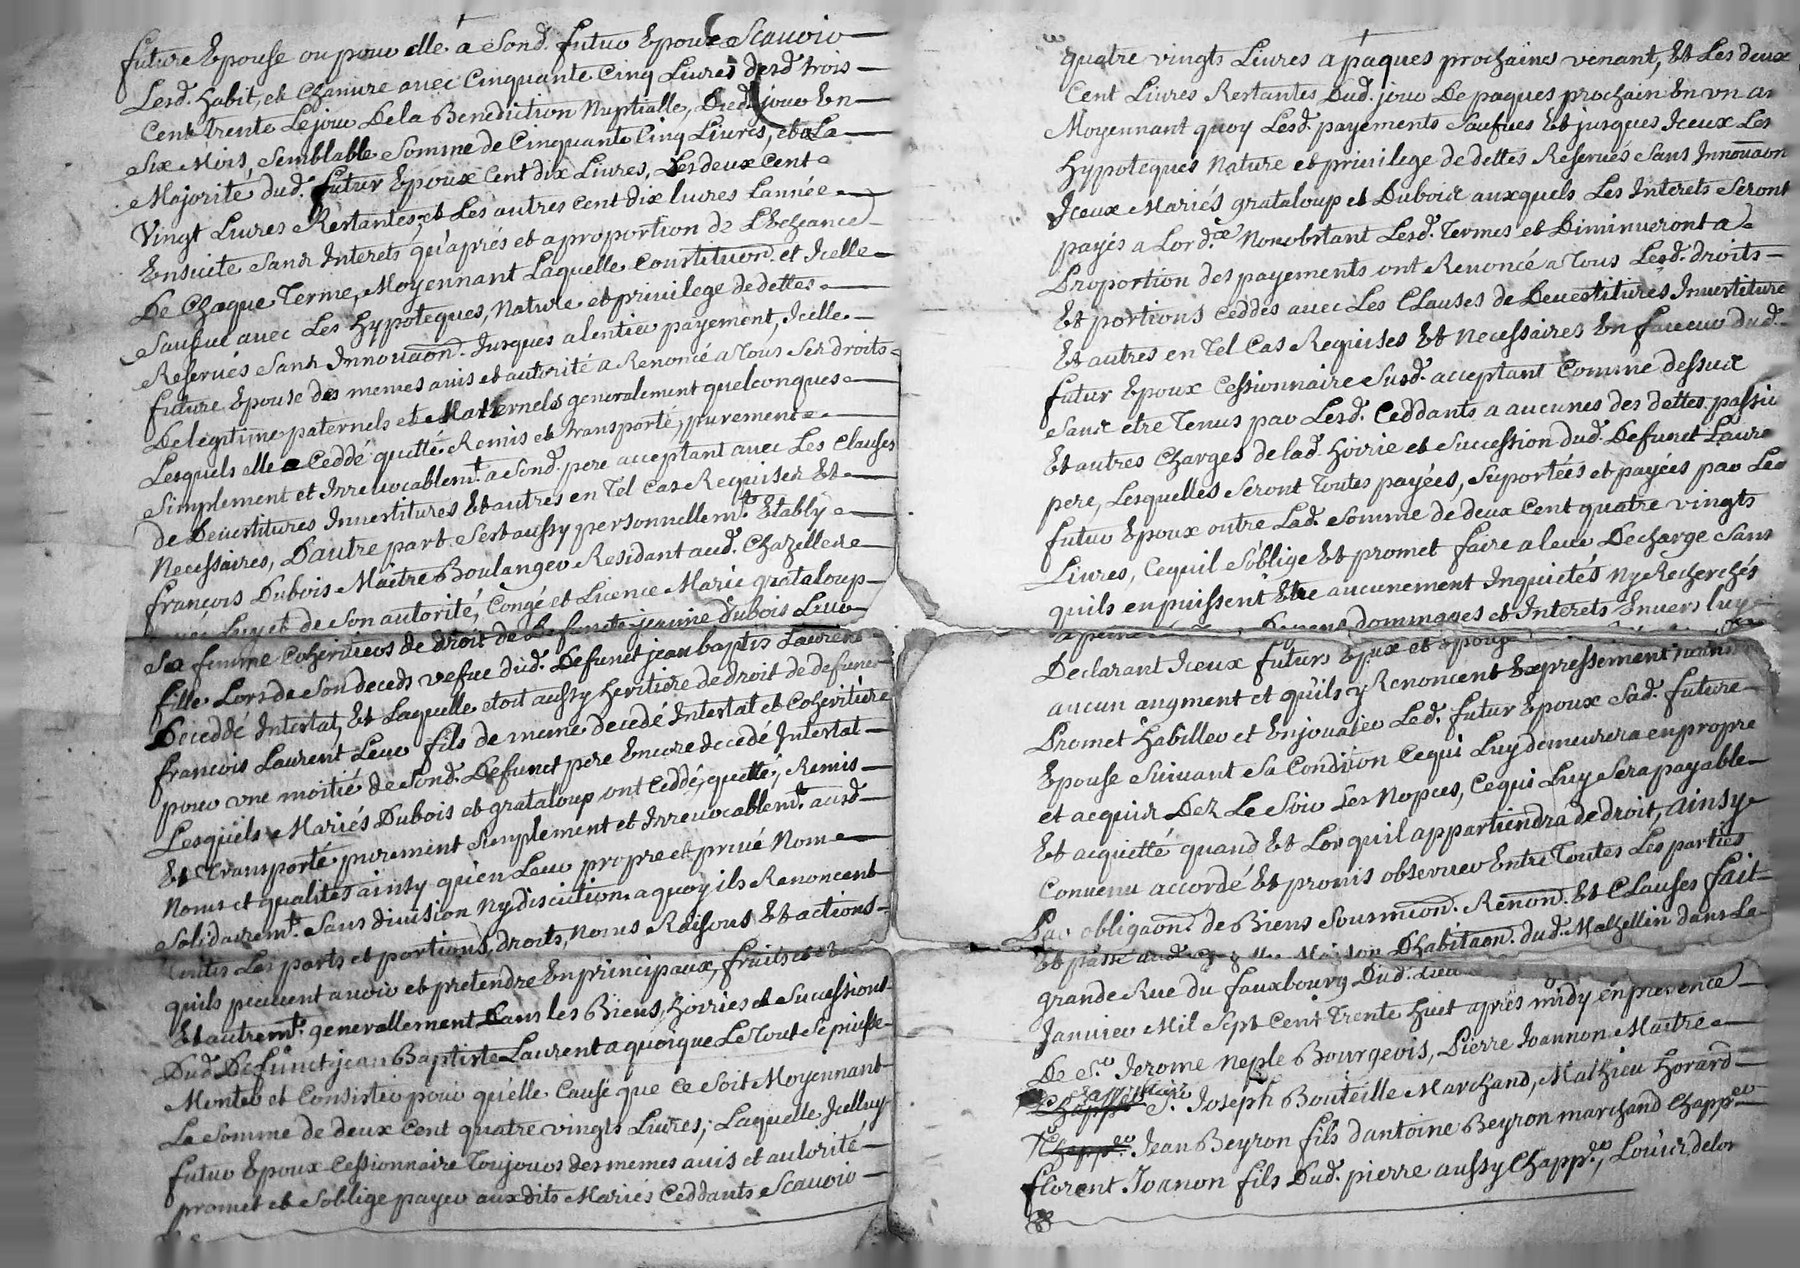 future Epouse ou pour elle a Sond. futur Epoux Scauoir
Lesd. habit, et Chanure auec Cinquante Cinq Liures desd. trois
Cent trente Le jour De la Benediction Nuptialle, Dud. jour En
Six Mois, Semblable Somme de Cinquante Cinq Liures, et a La
Majorité dud. futur Epoux Cent dix Liures, Les deux Cent
Vingt Liures Restantes, et Les autres Cent dix liures L'année
Ensuite Sans Interets qu'aprés et a proportion de L'Echeance
De Chaque Terme, Moyennant Laquelle Constituon. et Icelle
Sauque auec Les hypoteques, Nature et priuilege de dettes
Reserués Sans Innouaon. Jusques a lentier payement, Icelle
future Epouse des memes auis et autorité a Renoncé a Tous Ses droits
De legitime paternels et Maternels generalement quelconques
Lesquels elle a Ceddé quitté Remis et transporté, purement
Simplement et Irreuocablemt. a Sond. pere acceptant auec Les Clauses
de Deuestitures Inuestitures Et autres en Tel Cas Requises Et
Necessaires, D'autre part Sest aussy personnellemt. Etably
françois Dubois Maitre Boulanger Residant aud. Chazelles
Luy et de Son autorité, Congé et Licence Marie grataloup
Sa femme Coheritiers de droit de Defuncte jeanne Dubois Leur
fille Lors de Son deceds vefue dud. Defunct jean baptis Laurent
Deceddé Intestat, Et Laquelle etoit aussy heritiere de droit de defunct
francois Laurent Leur fils de meme decedé Intestat et Coheritiere
pour vne moitié de Sond. Defunct pere Encore decedé Intestat
Lesquels Mariés Dubois et grataloup ont Ceddé, quitté, Remis
Et Transporté purement Simplement et Irreuocablemt. aud.
Noms et qualités ainsy qu'en Leur propre et priué Nom
Solidairemt. Sans diuision Ny discution a quoy ils Renoncent
toutes Les parts et portions, droits, noms Raisons Et actions
quils peuuent auoir et pretendre En principaux, fruits et
Et autremt. generallement Dans les Biens, hoiries et Successions
Dud. Defunct jean Baptiste Laurent a quoy que Le Tout Se puisse
Monter et Consister pour qu'elle Cause que Ce Soit Moyennant
La Somme de deux Cent quatre vingts Liures, Laquelle Icelluy
futur Epoux Cessionnaire Toujours des memes auis et autorité
promet et Soblige payer aux dits Mariés Ceddants Scauoir
quatre vingts Liures a paques prochaines venant, Et Les deux
Cent Liures Restantes Dud. jour De paques prochain En vn an
Moyennant quoy Lesd. payements Saufues Et jusques Iceux Les
hypoteques Nature et priuilege de dettes Reserués Sans Innouaon
Iceux Mariés grataloup et Dubois auxquels Les Interets Seront
payés a Lord.re Nonobstant Lesd. Termes et Diminueront a
Proportion des payements ont Renoncé a Tous Lesd. droits
Et portions Ceddés auec Les Clauses de Deuestitures Inuestiture
Et autres en Tel Cas Requises Et Necessaires En faueur dud.
futur Epoux Cessionnaire Susd. acceptant Comme dessus
Sans etre Tenus par Lesd. Ceddants a aucunes des dettes passiu
Et autres Charges de lad. hoirie et Succession dud. Defunct Laure
pere, Lesquelles Seront Toutes payées, Suportées et payées par Led
futur Epoux outre Lad. Somme de deux Cent quatre vingts
Liures, Cequil S'oblige Et promet faire a leur Decharge Sans
quils en puissent Etre aucunement Inquietés Ny Recherchés
a peine Depens dommages et Interets Enuers luy
Declarant Iceux futurs Epoux et epouse
aucun augment et quils y Renoncent Expressement
Promet habiller et Enjoualer Led. futur Epoux Sad. future
Epouse Suiuant Sa Condition Cequi Luy demeurera en propre
et acquis Dez Le Soir des Nopces, Cequi Luy Sera payable
Et acquitté quand Et Lors quil appartiendra de droit, ainsy
Conuenu accordé Et promis obseruer Entre Toutes Les parties
Par obligaon. de Biens Soumnion. Renon. Et Clauses fait
Et passé Maison D'habitaon. dud. Mathellin dans La
grande Rue du fauxbourg Dud. Lieu
Januier Mil Sept Cent Trente huit aprés midy en presence
De Sr. Jerome Neple Bourgeois, Pierre Joannon Maitre
Chappr. Sr. Joseph Bouteille Marchand, Mathieu Horard
Chappr. Jean Beyron fils d'antoine Beyron marchand Chappr.
florent Joannon fils Dud. pierre aussy Chappr., Louis delor